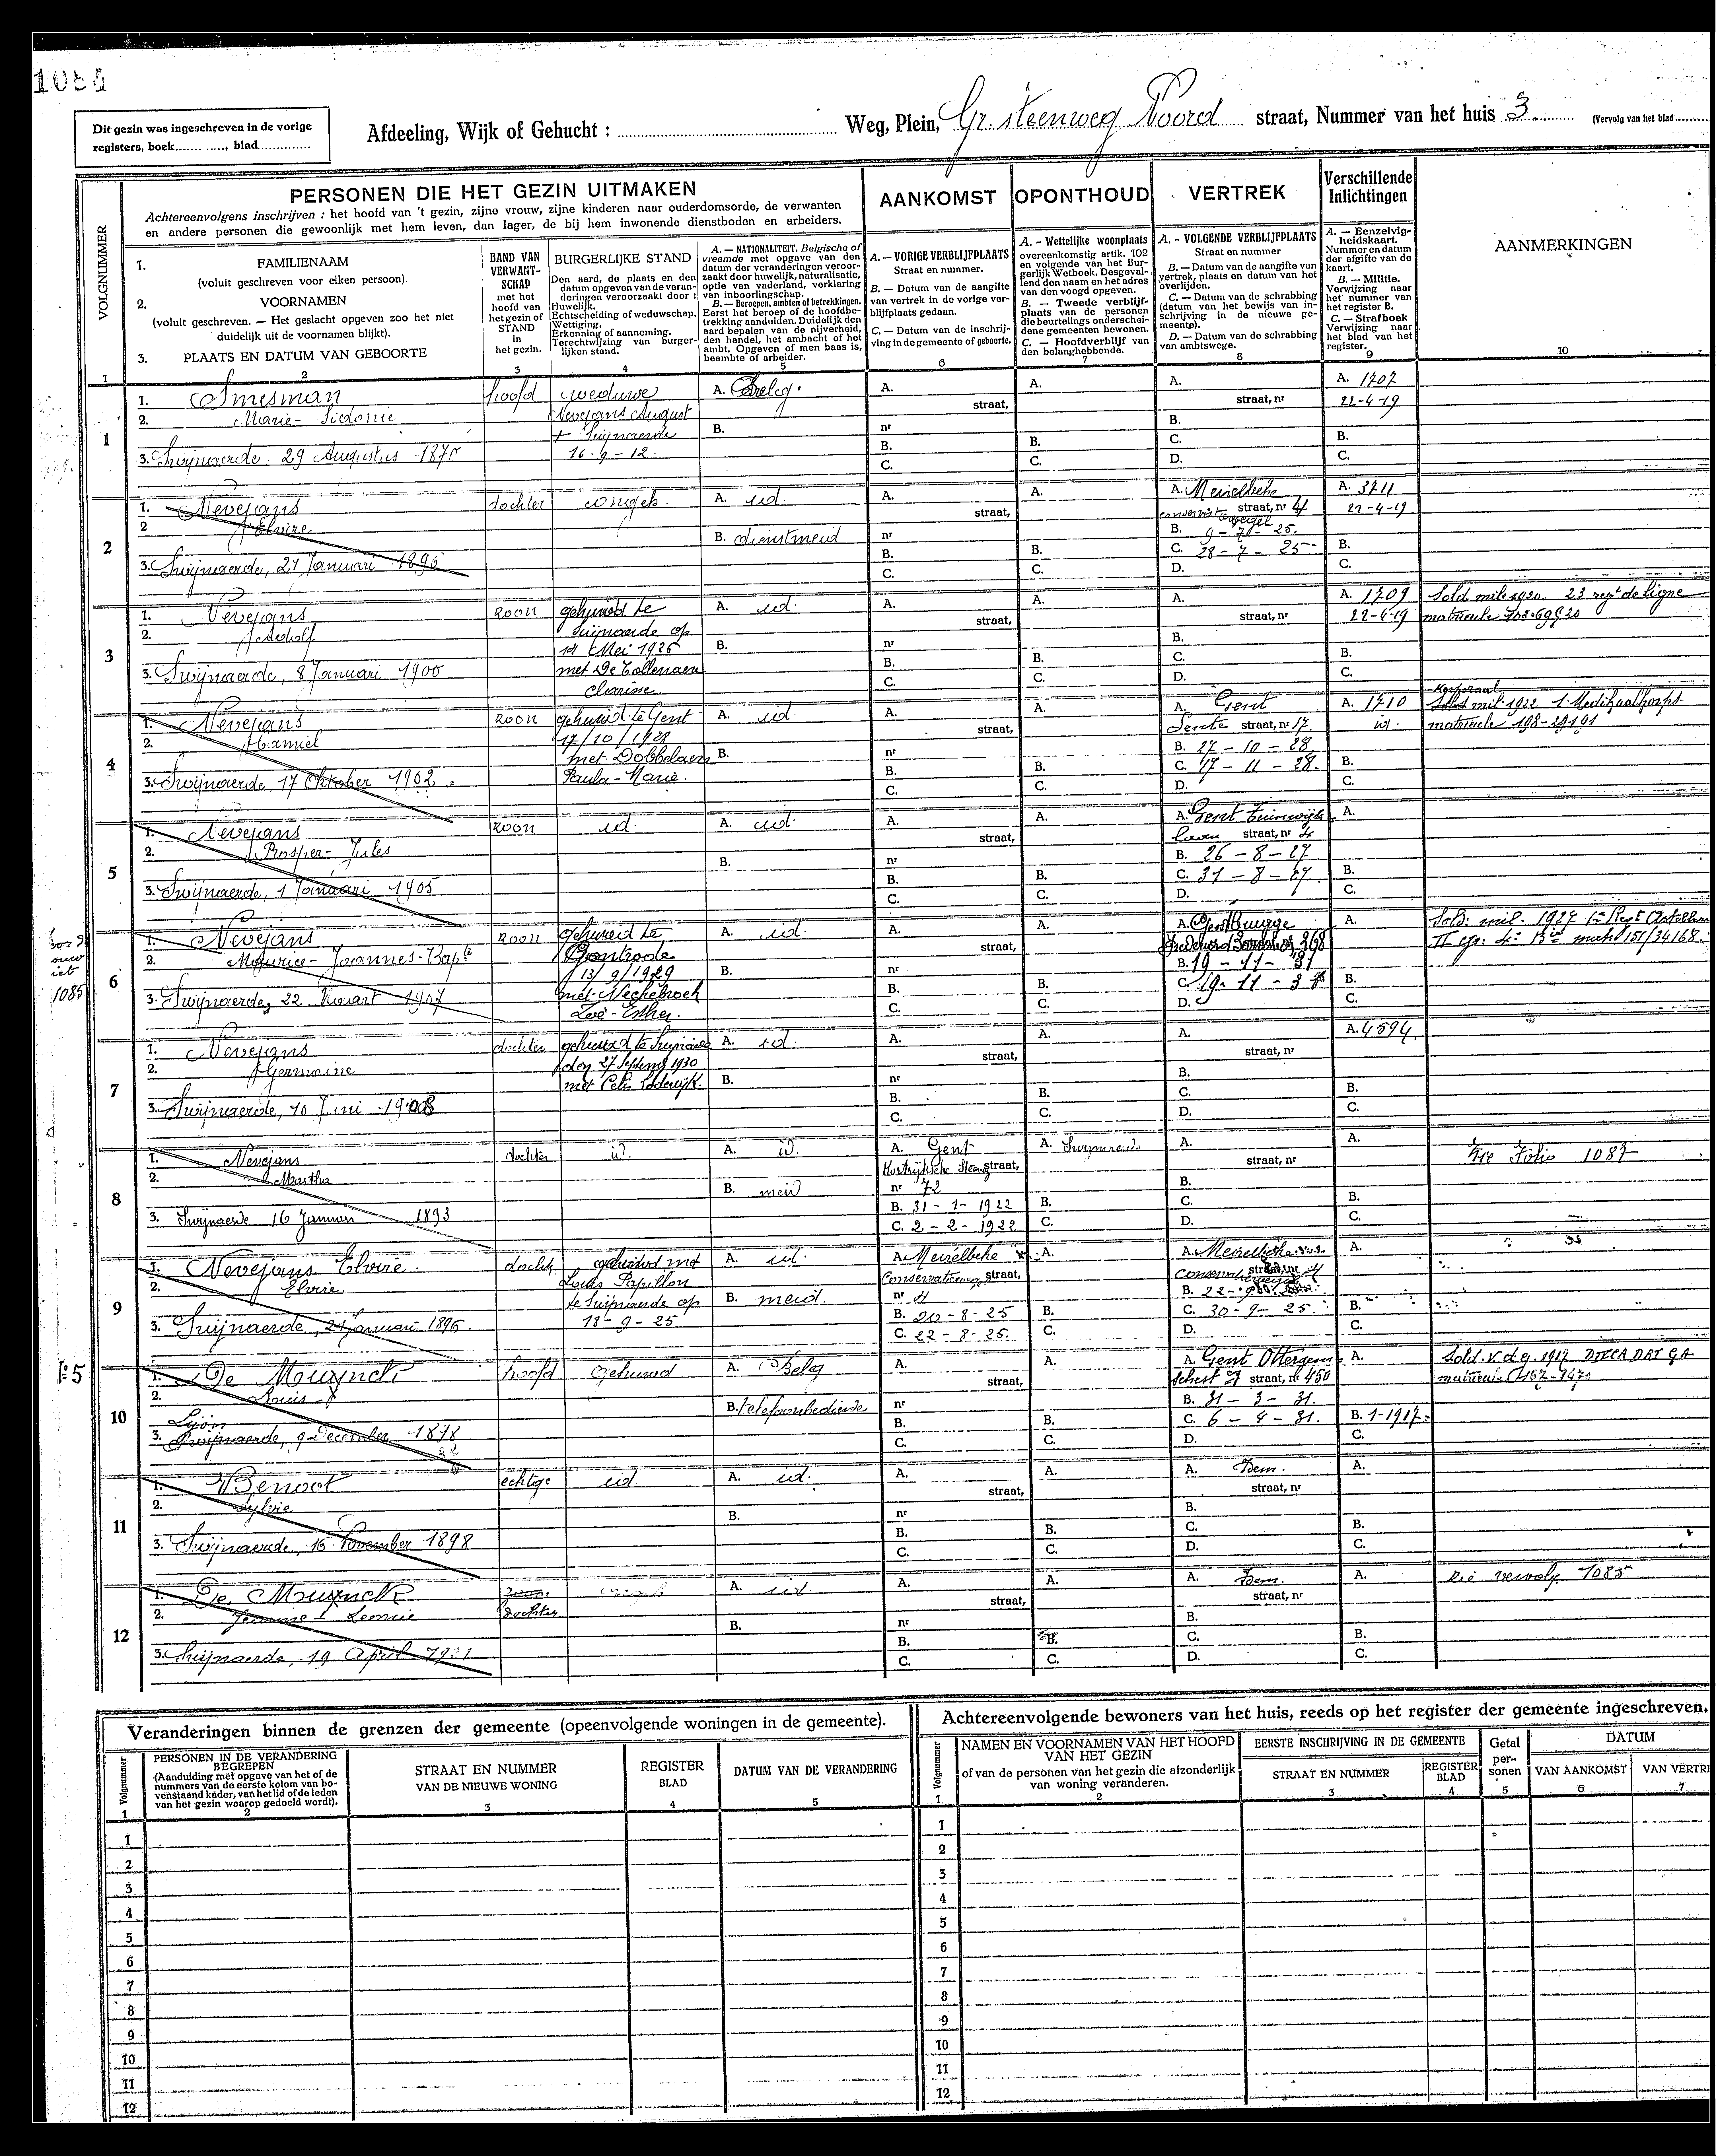 1084
Dit gezin was ingeschreven in de vorige
registers, boek............, blad.............
Afdeeling, Wijk of Gehucht : ........ Weg, Plein, Gr. steenweg Noord straat, Nummer van het huis 3 (Vervolg van het blad
PERSONEN DIE HET GEZIN UITMAKEN
Achtereenvolgens inschrijven : het hoofd van 't gezin, zijne vrouw, zijne kinderen naar ouderdomsorde, de verwanten
en andere personen die gewoonlijk met hem leven, dan lager, de bij hem inwonende dienstboden en arbeiders.
AANKOMST
OPONTHOUD
VERTREK
Verschillende
Inlichtingen
AANMERKINGEN
VOLGNUMMER
1. FAMILIENAAM
(voluit geschreven voor elken persoon).
2. VOORNAMEN
(voluit geschreven. — Het geslacht opgeven zoo het niet
duidelijk uit de voornamen blijkt).
3. PLAATS EN DATUM VAN GEBOORTE
BAND VAN
VERWANT-
SCHAP
met het
hoofd van
het gezin of
STAND
in
het gezin.
BURGERLIJKE STAND
Den aard, de plaats en den
datum opgeven van de veran-
deringen veroorzaakt door :
Huwelijk.
Echtscheiding of weduwschap.
Wettiging.
Erkenning of aanneming.
Terechtwijzing van burger-
lijken stand.
A. — NATIONALITEIT. Belgische of
vreemde met opgave van den
datum der veranderingen veroor-
zaakt door huwelijk, naturalisatie,
optie van vaderland, verklaring
van inboorlingschap.
B. — Beroepen, ambten of betrekkingen.
Eerst het beroep of de hoofdbe-
trekking aanduiden. Duidelijk den
aard bepalen van de nijverheid,
den handel, het ambacht of het
ambt. Opgeven of men baas is,
beambte of arbeider.
A. — VORIGE VERBLIJFPLAATS
Straat en nummer.
B. — Datum van de aangifte
van vertrek in de vorige ver-
blijfplaats gedaan.
C. — Datum van de inschrij-
ving in de gemeente of geboorte.
A. - Wettelijke woonplaats
overeenkomstig artik. 102
en volgende van het Bur-
gerlijk Wetboek. Desgeval-
lend den naam en het adres
van den voogd opgeven.
B. — Tweede verblijf-
plaats van de personen
die beurtelings onderschei-
dene gemeenten bewonen.
C. — Hoofdverblijf van
den belanghebbende.
A. - VOLGENDE VERBLIJFPLAATS
Straat en nummer
B. — Datum van de aangifte van
vertrek, plaats en datum van het
overlijden.
C. — Datum van de schrabbing
(datum van het bewijs van in-
schrijving in de nieuwe ge-
meente).
D. — Datum van de schrabbing
van ambtswege.
A. — Eenzelvig-
heidskaart.
Nummer en datum
der afgifte van de
kaart.
B. — Militie.
Verwijzing naar
het nummer van
het register B.
C. — Strafboek
Verwijzing naar
het blad van het
register.
1 2 3 4 5 6 7 8 9 10
1
1. Smesman hoofd weduwe A. Belg. A. A. A. A. 1707
2. Marie-Sidonie Nevejans August straat, straat, nr 22-4-19
+ Swijnaerde B. nr B.
3. Swijnaerde 29 Augustus 1870 16-9-12 B. B. C. B.
C. C. D. C.
2
1. Nevejans dochter ongeh. A. id. A. A. A. Meirelbeke A. 3711
2 Elvire straat, straat, nr 4 22-4-19
B. dienstmeid nr B. 9-7-25.
3. Swijnaerde, 21 Januari 1896 B. B. C. 28-7-25 B.
C. C. D. C.
3
1. Nevejans zoon gehuwd te A. id. A. A. A. A. 1709 Sold. mil. 1920. 23 regt de ligne
2. Adolf Swijnaerde op straat, straat, nr 22-4-19
Mei 1926 B. nr B.
3. Swijnaerde, 8 Januari 1900 met De Tollenaere B. B. C. B.
Clarisse. C. C. D. C.
4
1. Nevejans zoon gehuwd te Gent A. id. A. A. A. Gent A. 1710 Korporaal mil. 1922
2. Kamiel 17/10/1928 straat, straat, nr 17 id. matricule 198-29191
met Dobbelaere B. nr B. 27-10-28
3. Swijnaerde, 17 Oktober 1902. Paula-Marie. B. B. C. 17-11-28. B.
C. C. D. C.
5
1. Nevejans zoon id. A. id. A. A. A. Gent A.
2. Prosper-Jules straat, straat, nr 4
B. nr B. 26-8-27
3. Swijnaerde, 1 Januari 1905 B. B. C. 31-8-27 B.
C. C. D. C.
1085
6
1. Nevejans zoon gehuwd te A. id. A. A. A. Gentbrugge A. Sold. mil. 1927
2. Maurice-Joannes-Bapte Gontrode straat,
13/9/1929 B. nr B. 19-11-31
3. Swijnaerde, 22 Maart 1907 met B. B. C. 19-11-31 B.
C. C. D. C.
7
1. Nevejans dochter gehuwd te Swijnaerde A. id. A. A. A. A. 4594.
2. Germaine den 27 Septemb 1930 straat, straat, nr
met Lodewijk. B. nr B.
3. Swijnaerde, 10 Juni 1908 B. B. C. B.
C. C. D. C.
8
1. Nevejans dochter id. A. id. A. Gent A. Swijnaerde A. A. Zie Folio 1087
2. Martha Kortrijksche Steenw straat, straat, nr
B. meid nr 72 B.
3. Swijnaerde 16 Januari 1893 B. 31-1-1922 B. C. B.
C. 2-2-1922 C. D. C.
9
1. Nevejans Elvire. docht. gehuwd met A. id. A. Meirelbeke A. A. Meirelbeke A.
2. Elvire Louis Papillon straat,
te Swijnaerde op B. meid. nr 4 B. 22-9
3. Swijnaerde, 21 Januari 1896. 18-9-25 B. 20-8-25 B. C. 30-9-25. B.
C. 22-8-25. C. D. C.
N: 5
10
1. De Muynck hoofd Gehuwd A. Belg A. A. A. Gent A. Sold. v. d. g. 1917
2. Louis straat, straat, nr 450
B. telefoonbediende nr B. 31-3-31.
3. Swijnaerde, 9 December 1898 B. B. C. 6-4-31. B. 1-1917
C. C. D. C.
11
1. Benoot echtge id A. id. A. A. A. Idem. A.
2. Sylvie straat, straat, nr
B. nr B.
3. Swijnaerde, 16 November 1898 B. B. C. B.
C. C. D. C.
12
1. De Muynck A. id A. A. A. Idem. A. Zie vervolg 1085
2. Leonie dochter straat, straat, nr
B. nr B.
3. Swijnaerde, 19 April B. B. C. B.
C. C. D. C.
Veranderingen binnen de grenzen der gemeente (opeenvolgende woningen in de gemeente).
Volgnummer
PERSONEN IN DE VERANDERING
BEGREPEN
(Aanduiding met opgave van het of de
nummers van de eerste kolom van bo-
venstaand kader, van het lid of de leden
van het gezin waarop gedoeld wordt).
STRAAT EN NUMMER
VAN DE NIEUWE WONING
REGISTER
BLAD
DATUM VAN DE VERANDERING
1 2 3 4 5
1
2
3
4
5
6
7
8
9
10
11
12
Achtereenvolgende bewoners van het huis, reeds op het register der gemeente ingeschreven.
Volgnummer
NAMEN EN VOORNAMEN VAN HET HOOFD
VAN HET GEZIN
of van de personen van het gezin die afzonderlijk
van woning veranderen.
EERSTE INSCHRIJVING IN DE GEMEENTE
STRAAT EN NUMMER
REGISTER
BLAD
Getal
per-
sonen
DATUM
VAN AANKOMST
VAN VERTRE
1 2 3 4 5 6 7
1
2
3
4
5
6
7
8
9
10
11
12